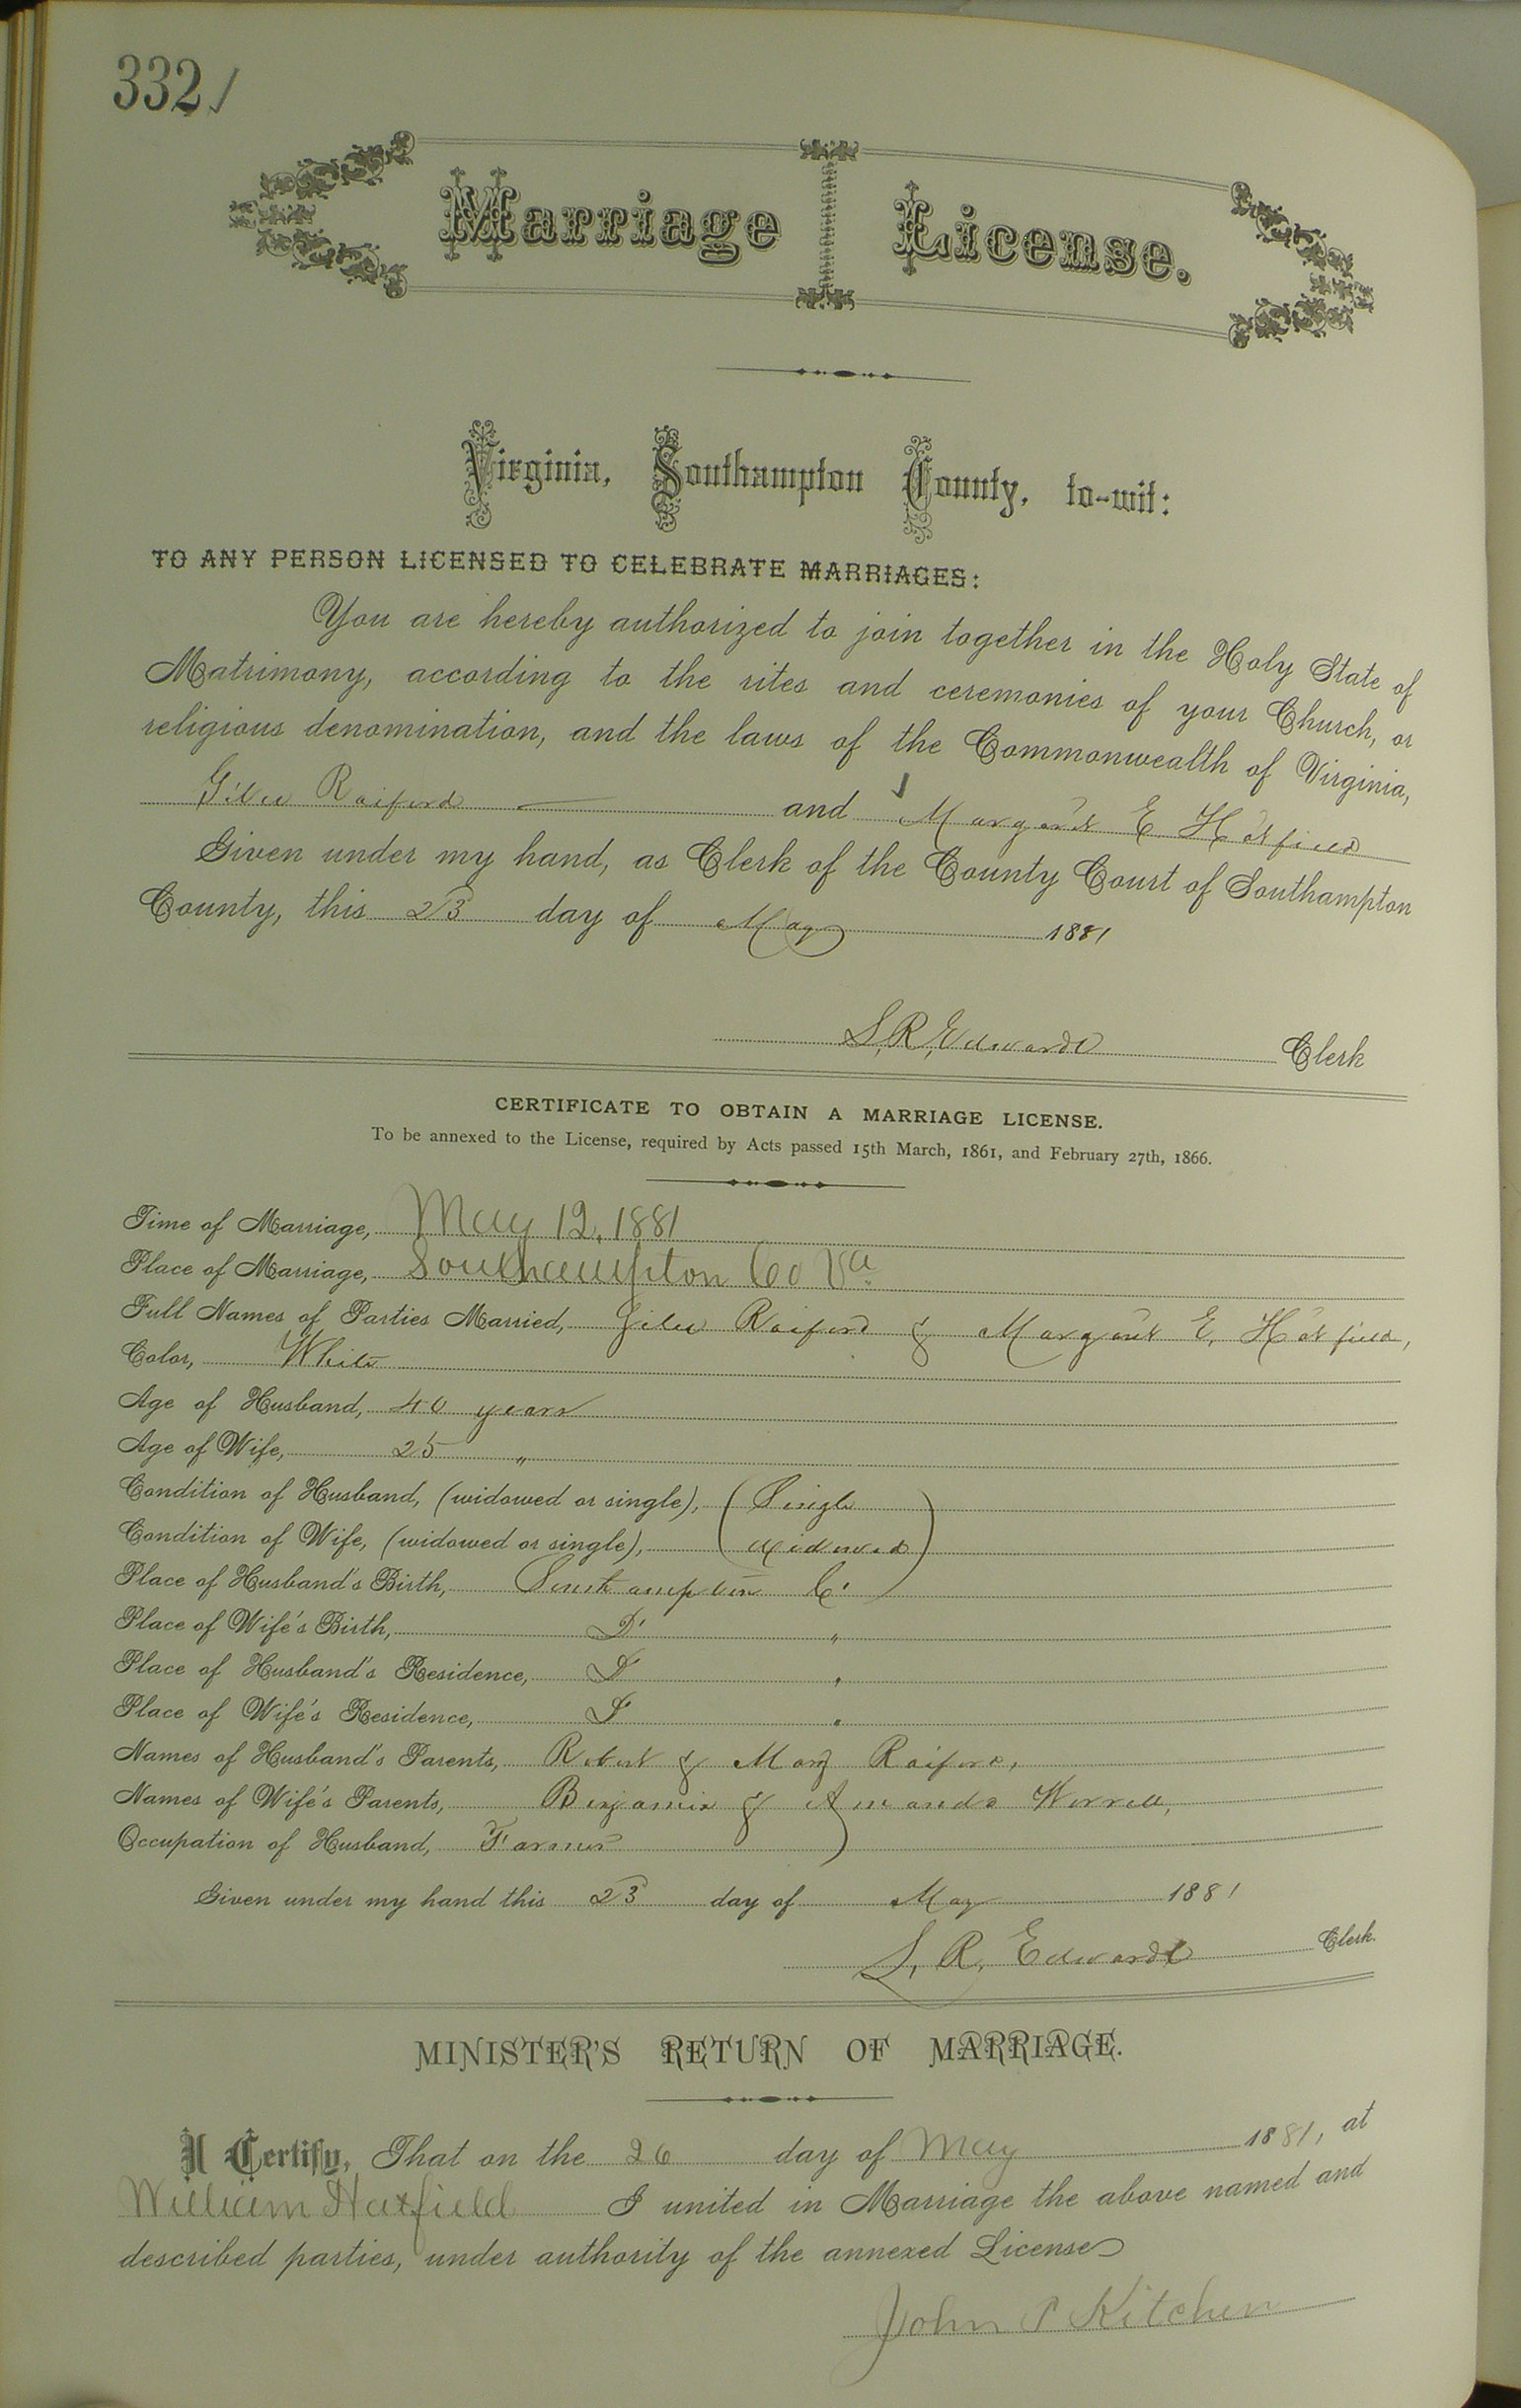 332
Marriage License.
Virginia, Southampton County, to-wit:
TO ANY PERSON LICENSED TO CELEBRATE MARRIAGES:
You are hereby authorized to join together in the Holy State of
Matrimony, according to the rites and ceremonies of your Church, or
religious denomination, and the laws of the Commonwealth of Virginia,
Giles Raiford and Margaret E Hatfield
Given under my hand, as Clerk of the County Court of Southampton
County, this 23 day of May 1881
L. R. Edwards Clerk
CERTIFICATE TO OBTAIN A MARRIAGE LICENSE.
To be annexed to the License, required by Acts passed 15th March, 1861, and February 27th, 1866.
Time of Marriage, May 12, 1881
Place of Marriage, Southampton Co Va
Full Names of Parties Married, Giles Raiford & Margaret E. Hatfield,
Color, White
Age of Husband, 40 years
Age of Wife, 25 "
Condition of Husband, (widowed or single), Single
Condition of Wife, (widowed or single), Widowed
Place of Husband's Birth, Southampton Co
Place of Wife's Birth, Do "
Place of Husband's Residence, Do "
Place of Wife's Residence, Do "
Names of Husband's Parents, Robert & Mary Raiford,
Names of Wife's Parents, Benjamin & Amanda Worrell,
Occupation of Husband, Farmer
Given under my hand this 23 day of May 1881
L. R. Edwards Clerk.
MINISTER'S RETURN OF MARRIAGE.
I Certify, That on the 26 day of May 1881, at
William Hatfield I united in Marriage the above named and
described parties, under authority of the annexed License
John P Kitchen